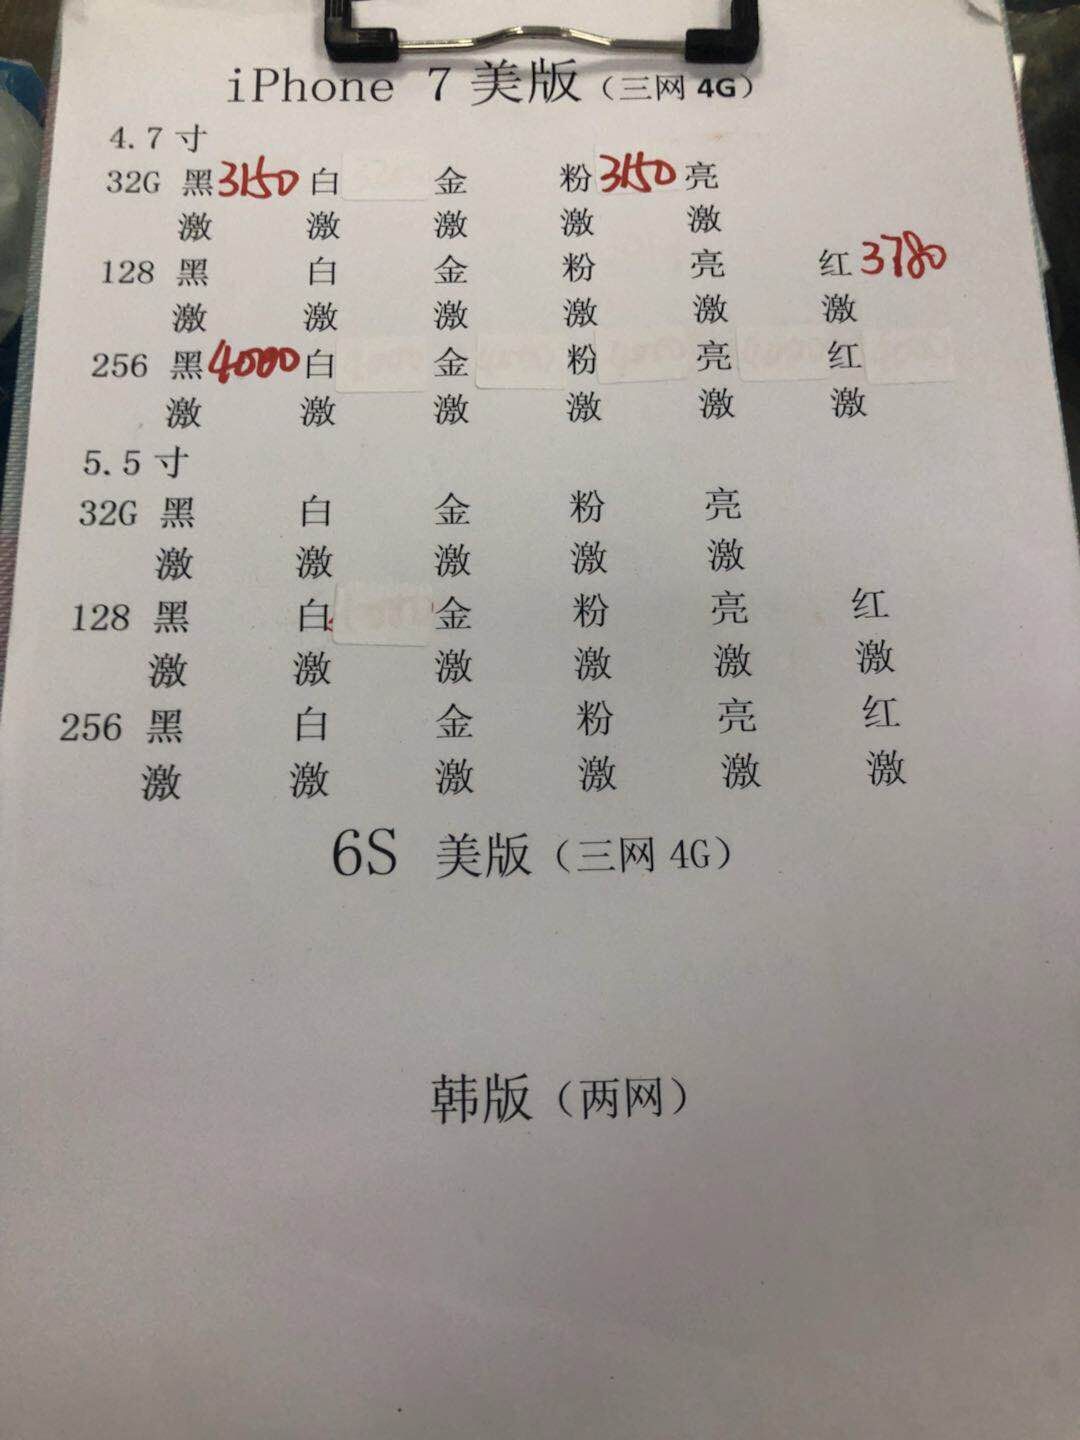 iPhone 7 美版（三网 4G）
4.7 寸
32G 黑 3150 白 金 粉 3150 亮
激 激 激 激 激
128 黑 白 金 粉 亮 红 3780
激 激 激 激 激 激
256 黑 4000 白 金 粉 亮 红
激 激 激 激 激 激
5.5 寸
32G 黑 白 金 粉 亮
激 激 激 激 激
128 黑 白 金 粉 亮 红
激 激 激 激 激 激
256 黑 白 金 粉 亮 红
激 激 激 激 激 激
6S 美版（三网 4G）
韩版（两网）